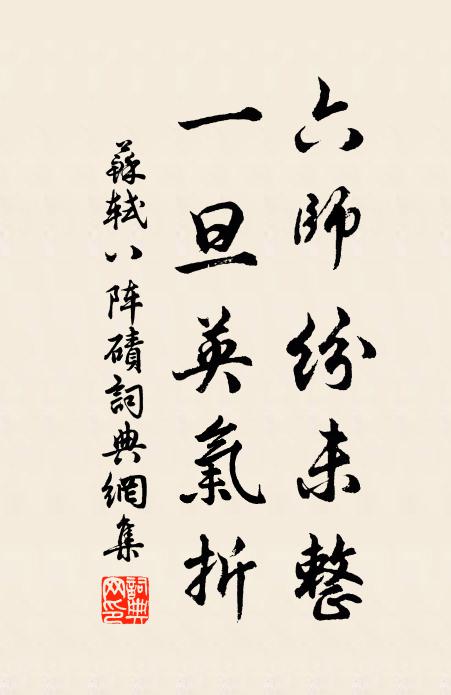 六師紛未整
一旦英氣折
蘇軾八阵磧詞典網集
詞典網印